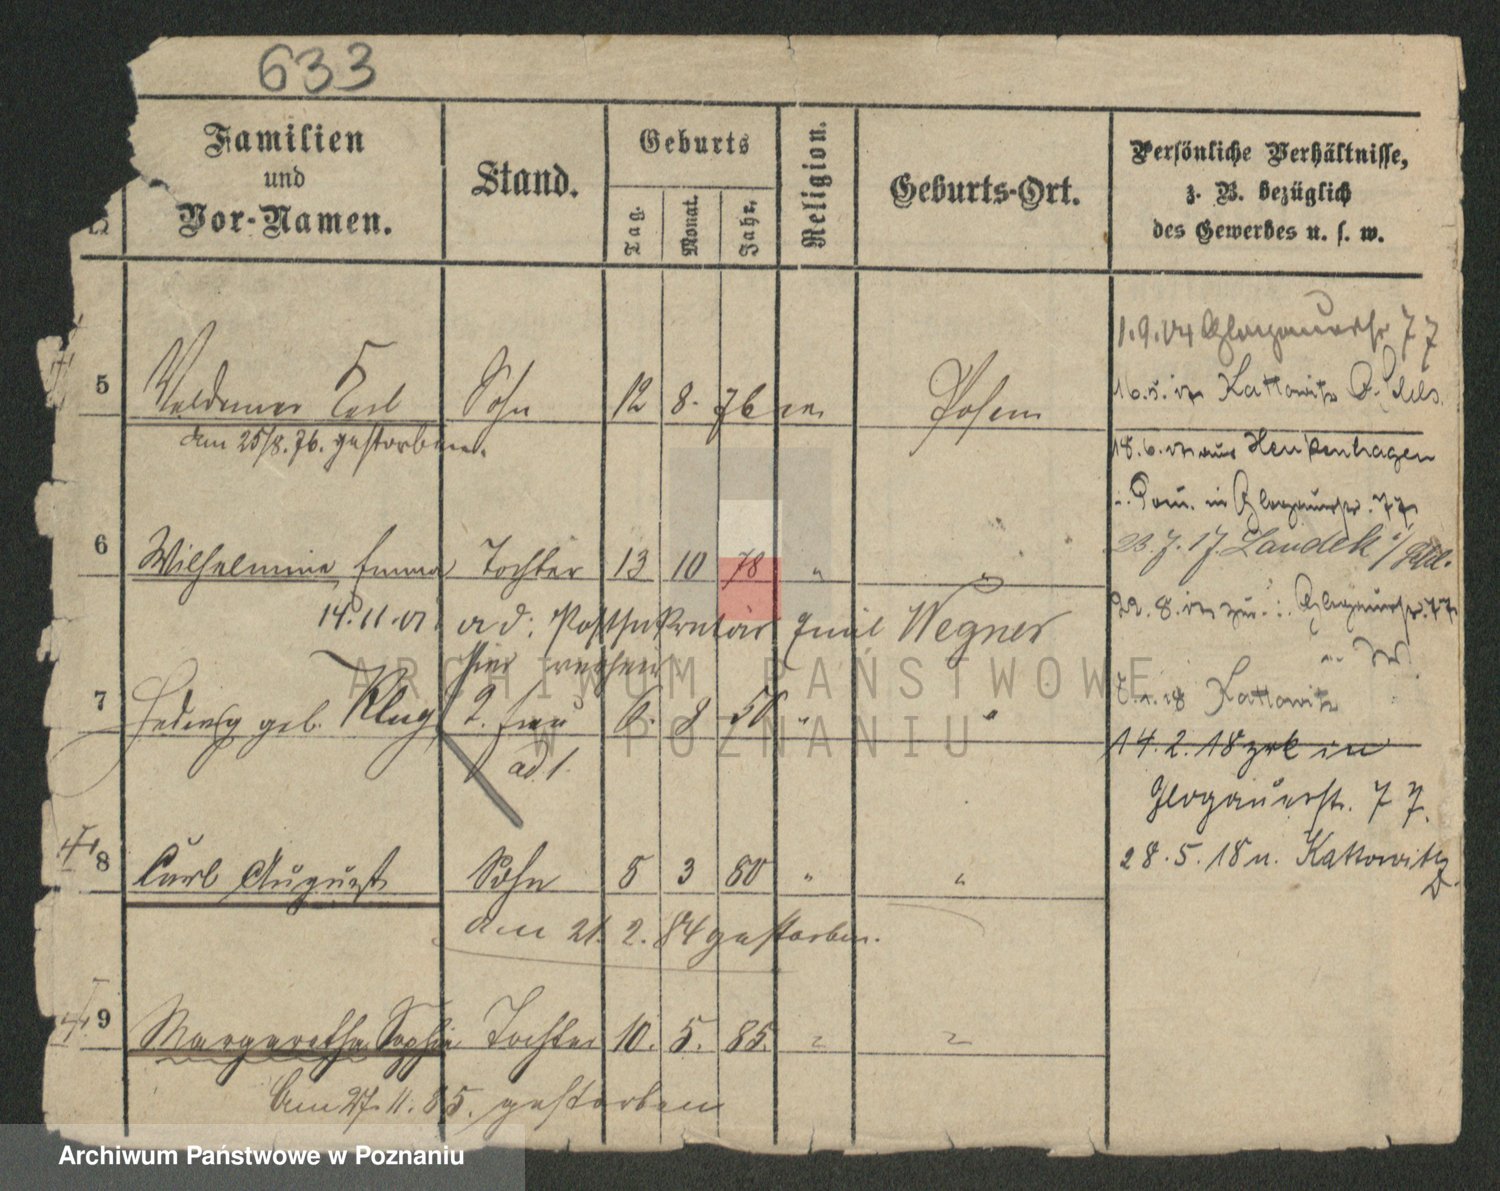 633
Familien
und
Vor-Namen.
Stand.
Geburts
Tag.
Monat.
Jahr.
Religion.
Geburts-Ort.
Persönliche Verhältnisse,
z. B. bezüglich
des Gewerbes u. s. w.
5 Waldemar Karl Sohn 12 8. 76 Posen
den 25/8. 76. gestorben.
6 Wilhelmine Emma Tochter 13 10 78 " "
14.11.01. ad: Postsekretär Emil Wegner
hier
7 Hedwig geb. Klug 2. Frau 6. 8 50 " "
ad 1.
8 Carl August Sohn 5 3 80 " "
den 21. 2. 84 gestorben.
9 Margarethe Sophie Tochter 10. 5. 85. " "
Am 27. 11. 85. gestorben
Glogauerstr 77
16.5.17 Kattowitz
18.6.17 aus Henkenhagen
i. Pom. in Glogauerstr. 77
23.7.17 Landek i/
22.8.17 zu Glogauerstr. 77
Kattowitz
14.2.18 zrk in
Glogauerstr. 77.
28.5.18 n. Kattowitz
ARCHIWUM PAŃSTWOWE
W POZNANIU
Archiwum Państwowe w Poznaniu